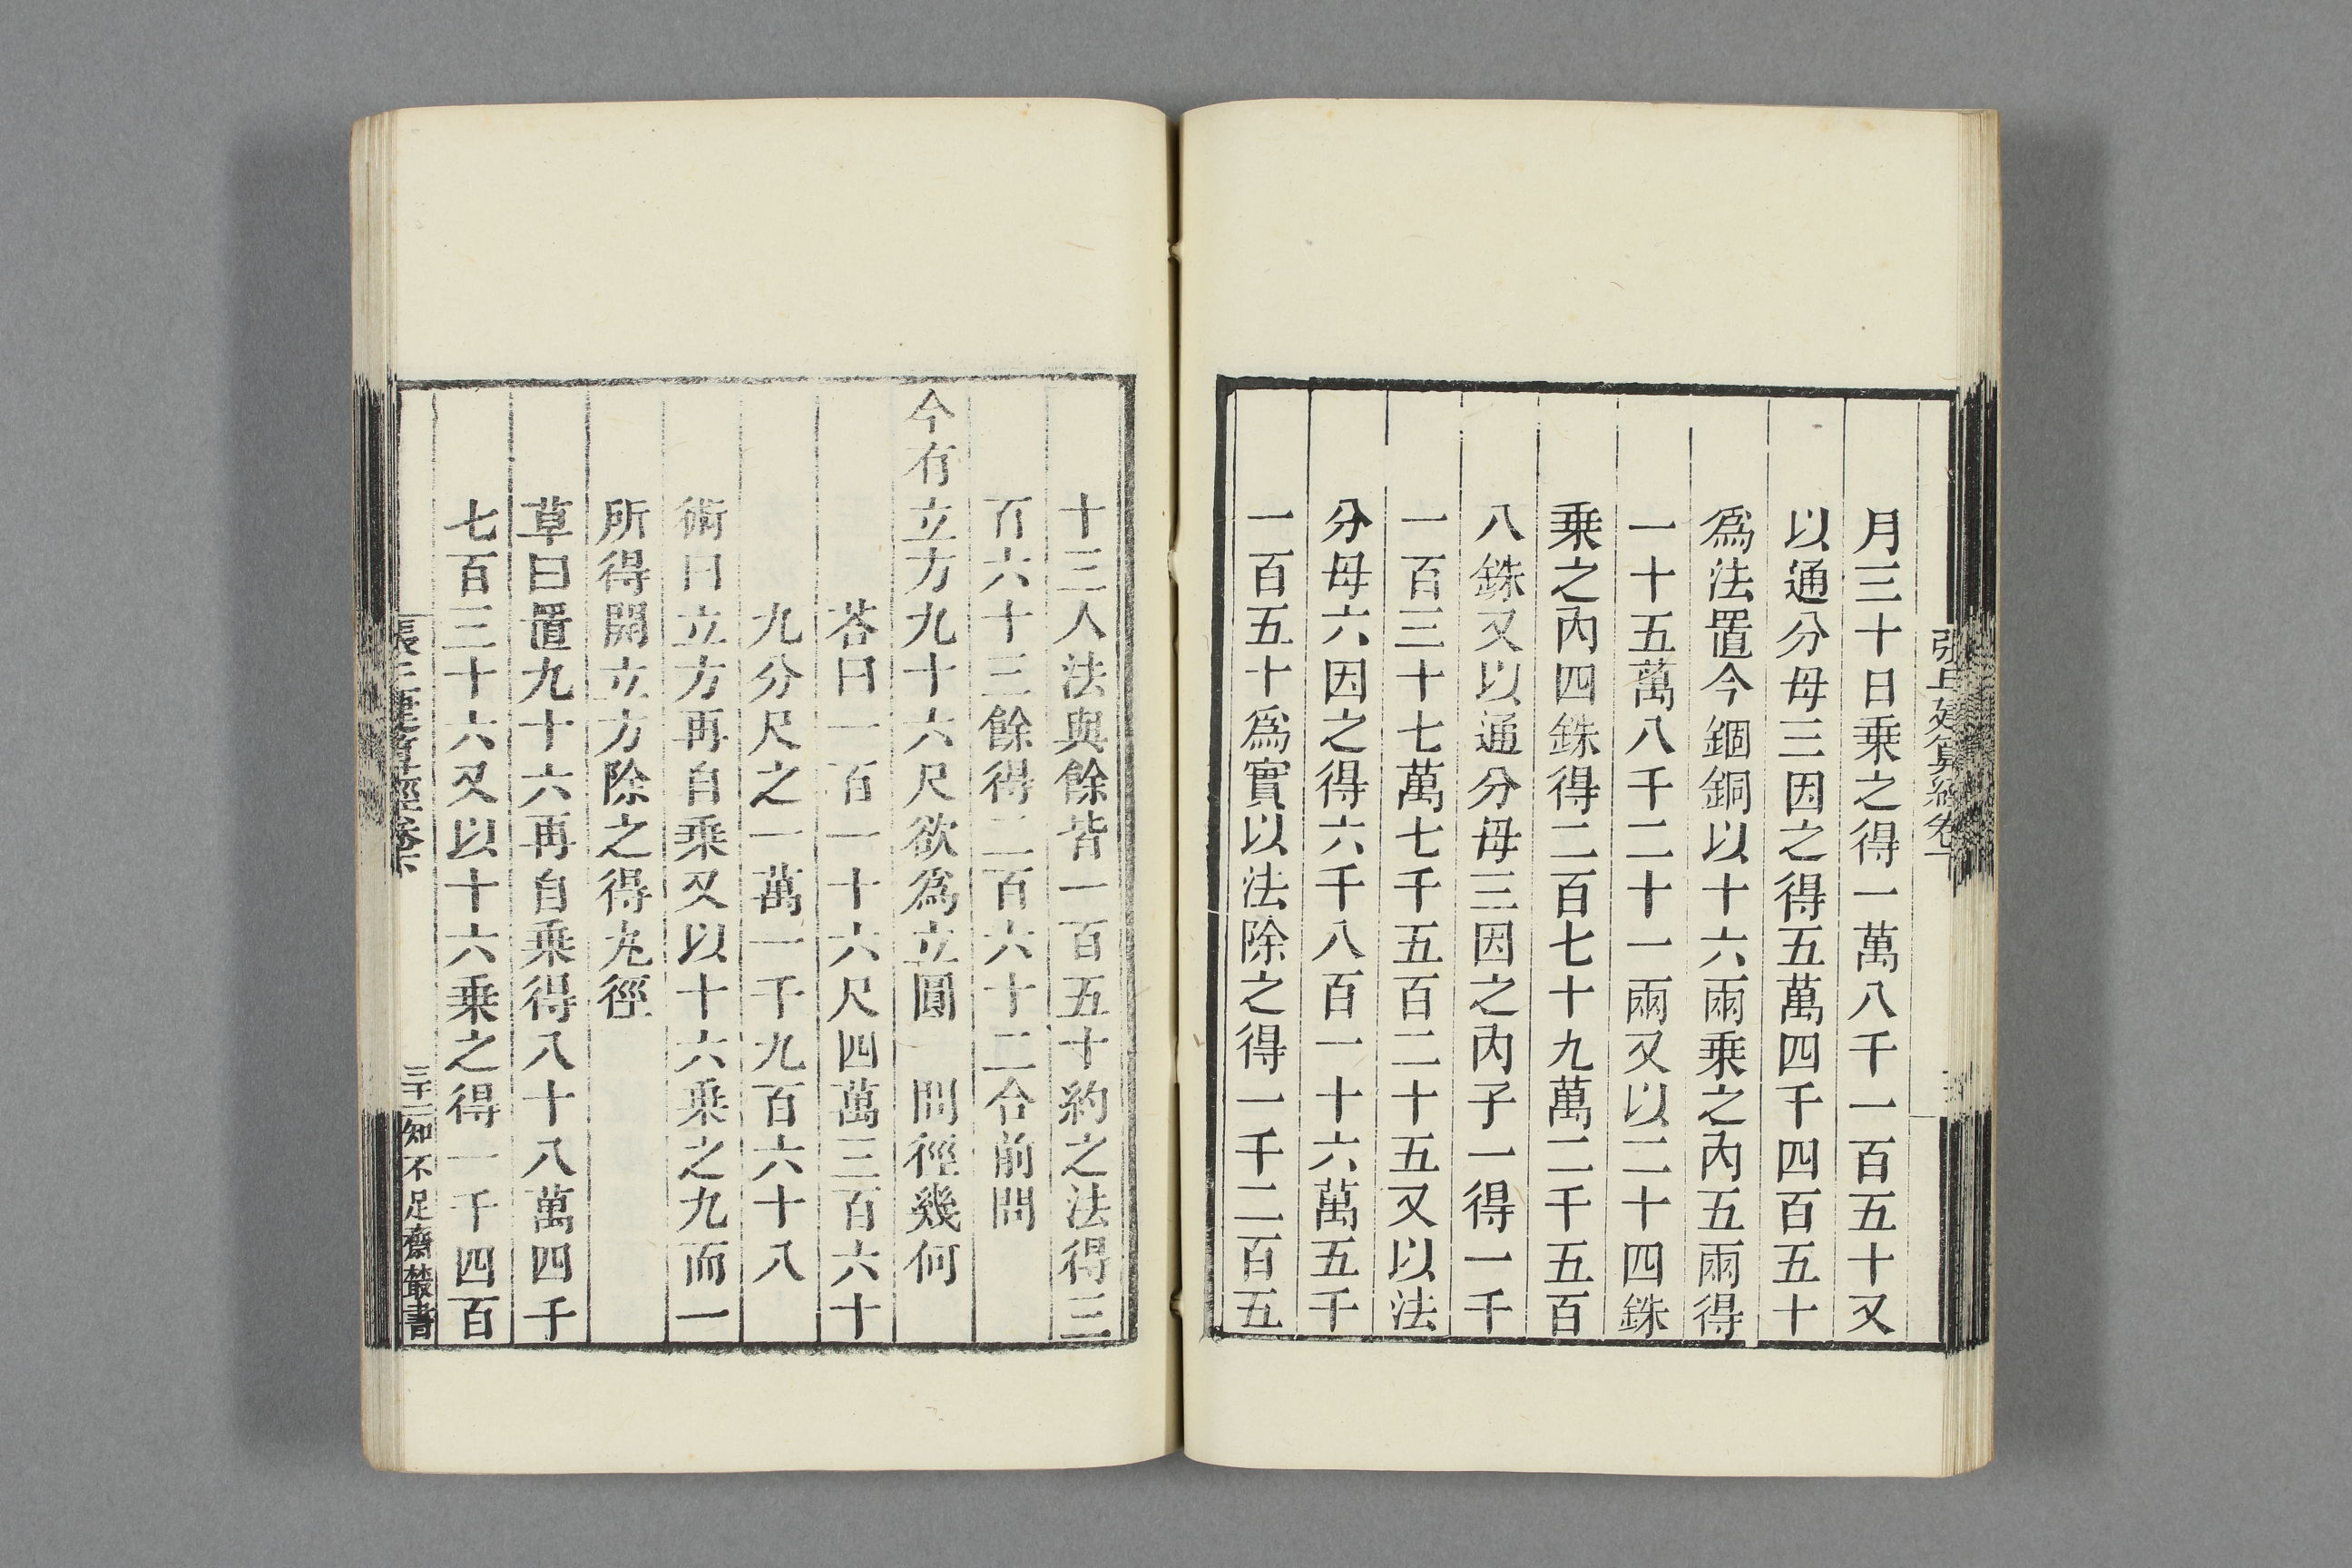 張丘建算經卷下
月三十日乗之得一萬八千一百五十又
以通分母三因之得五萬四千四百五十
爲法置今錮銅以十六兩乗之內五兩得
一十五萬八千二十一兩又以二十四銖
乗之內四銖得二百七十九萬二千五百
八銖又以通分母三因之內子一得一千
一百三十七萬七千五百二十五又以法
分母六因之得六千八百一十六萬五千
一百五十爲實以法除之得一千二百五
十三人法與餘皆一百五十約之法得三
百六十三餘得二百六十二合前問
今有立方九十六尺欲爲立圓 問徑幾何
荅曰一百一十六尺四萬三百六十
九分尺之一萬一千九百六十八
術曰立方再自乗又以十六乗之九而一
所得開立方除之得丸徑
草曰置九十六再自乗得八十八萬四千
七百三十六又以十六乗之得一千四百
張丘建算經卷下
三十二
知不足齋叢書